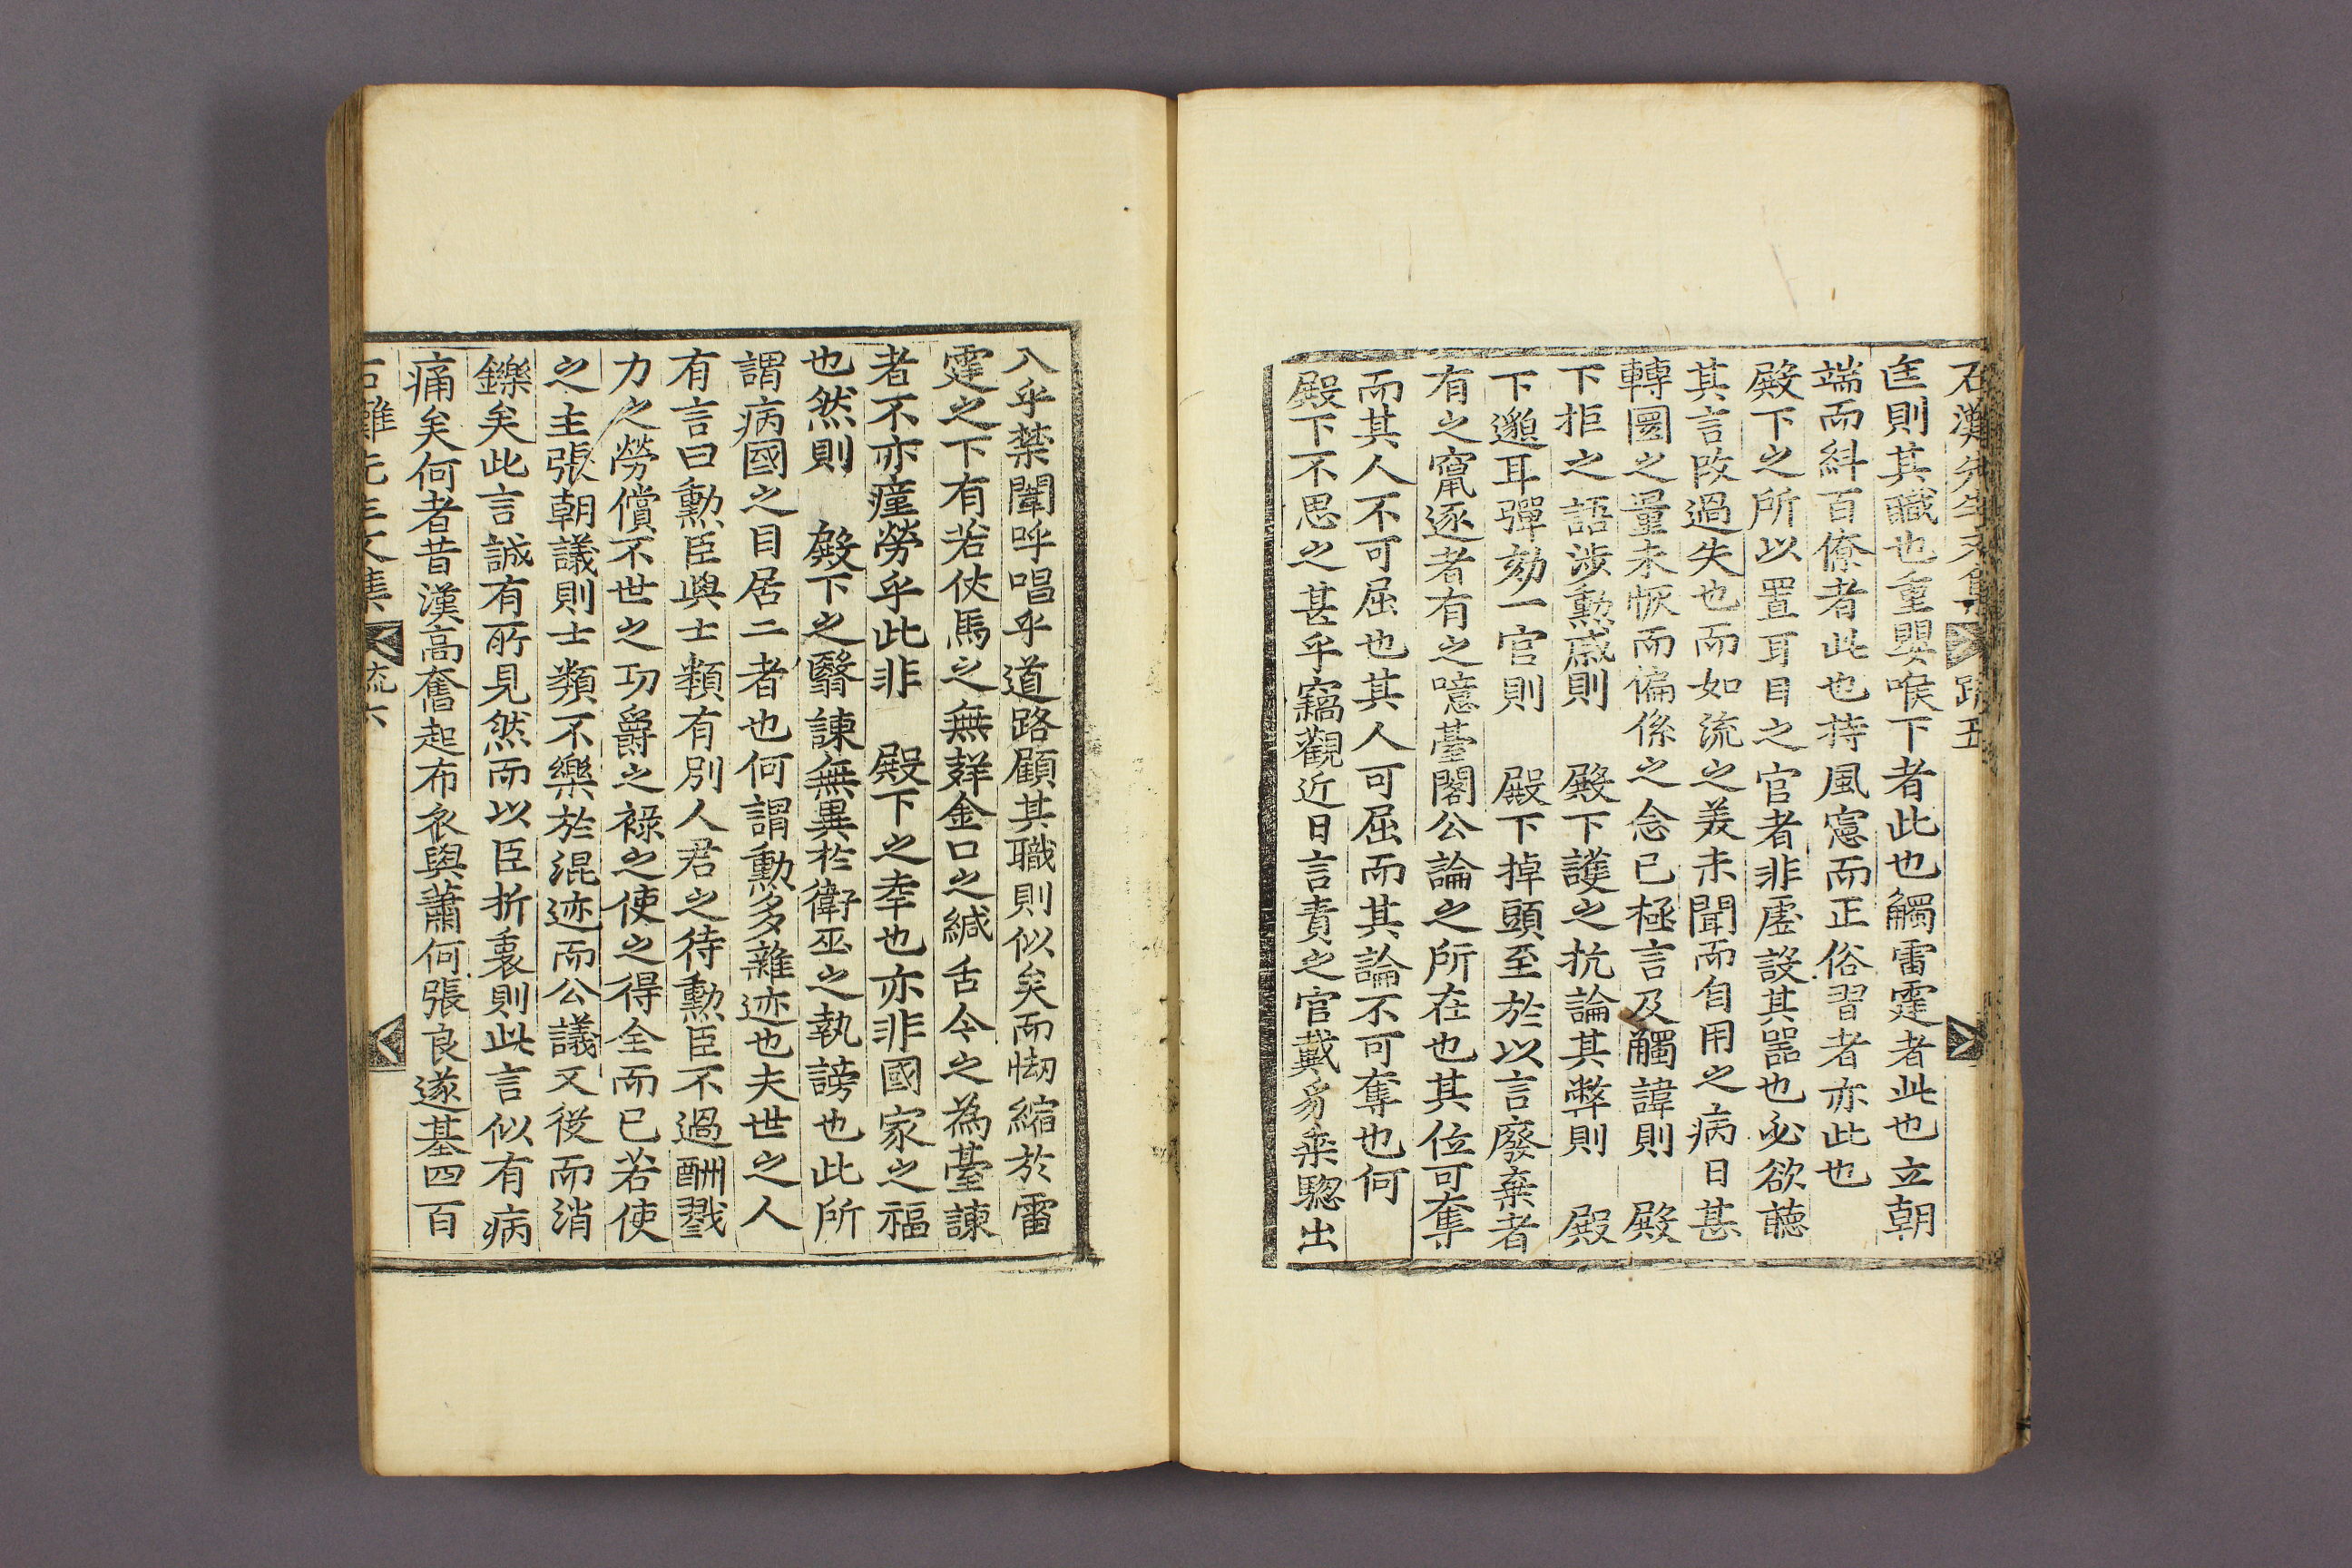 石灘先生文集 疏 五
匡則其職也重嬰喉下者此也觸雷霆者此也立朝
端而糾百僚者此也持風憲而正俗習者亦此也
殿下之所以置耳目之官者非虛設其器也必欲聽
其言改過失也而如流之美未聞而自用之病日甚
轉圜之量未恢而偏係之念已極言及觸諱則 殿
下拒之語涉勳戚則 殿下護之抗論其弊則 殿
下邈耳彈劾一官則 殿下掉頭至於以言廢棄者
有之竄逐者有之噫臺閣公論之所在也其位可奪
而其人不可屈也其人可屈而其論不可奪也何
殿下不思之甚乎竊觀近日言責之官戴豸乘驄出
入乎禁闥呼唱乎道路顧其職則似矣而㤼縮於雷
霆之下有若仗馬之無蛘金口之緘舌今之為臺諫
者不亦瘽勞乎此非 殿下之幸也亦非國家之福
也然則 殿下之翳諫無異於衛巫之執謗也此所
謂病國之目居二者也何謂勳多雜迹也夫世之人
有言曰勳臣與士類有別人君之待勳臣不過酬戮
力之勞償不世之功爵之祿之使之得全而已若使
之主張朝議則士類不樂於混迹而公議又從而消
鑠矣此言誠有所見然而以臣折衷則此言似有病
痛矣何者昔漢高奮起布衣與蕭何張良遂基四百
石灘先生文集 疏 六